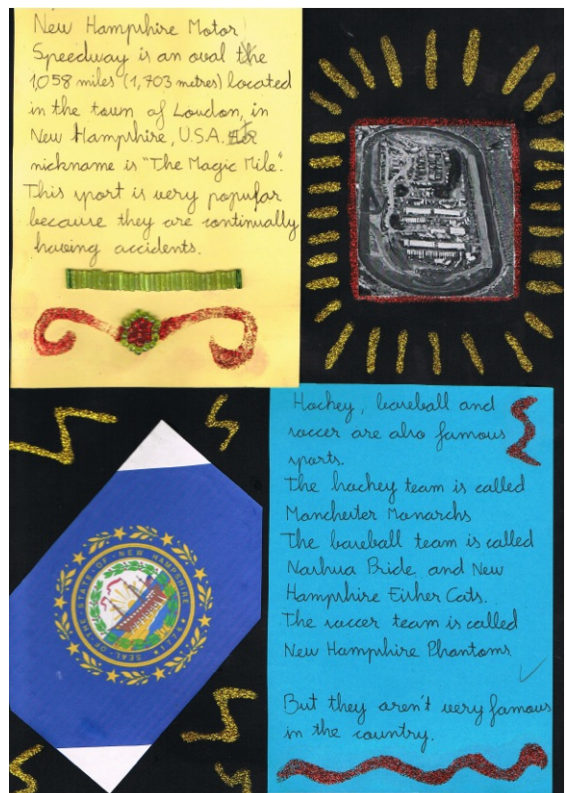 New Hampshire Motor
Speedway is an oval the
1,058 miles (1,703 metres) located
in the town of Loudon, in
New Hampshire, U.S.A.
nickname is "The Magic Mile".
This sport is very popular
because they are continually
having accidents.
SEAL · OF · THE · STATE · OF · NEW HAMPSHIRE · 1776
Hockey, baseball and
soccer are also famous
sports.
The hockey team is called
Manchester Monarchs
The baseball team is called
Nashua Pride and New
Hampshire Fisher Cats.
The soccer team is called
New Hampshire Phantoms
But they aren't very famous
in the country.